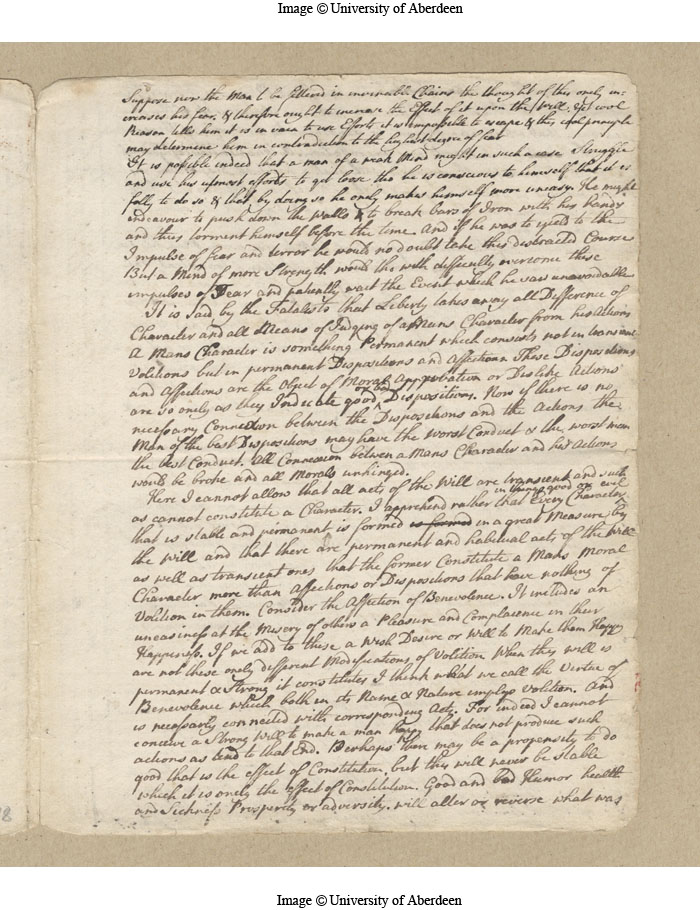 Image © University of Aberdeen
Suppose now the Man to be fettered in invincible Chains the thought of this only in-
creases his fear, & therefore ought to increase the Effect of it upon the Will. Yet cool
Reason tells him it is in vain to use Efforts it is impossible to escape & this cool principle
may determine him in contradiction to the highest degree of fear
It is possible indeed that a man of a weak Mind might in such a case Struggle
and use his utmost efforts to get loose tho he is conscious to himself that it is
folly to do so & that by doing so he only makes himself more uneasy. He might
endeavour to push down the Walls & to break bars of Iron with his hands
and thus torment himself before the time. And if he was to yield to the
Impulse of fear and terror he would no doubt take this distracted Course
But a Mind of more Strength would tho with difficulty overcome these
impulses of Fear and patiently wait the Event which he saw unavoidable
It is said by the Fatalists that Liberty takes away all Difference of
Character and all Means of Judging of a Mans Character from his Actions
A Mans Character is something Permanent which consists not in transient
Volitions but in permanent Dispositions and Affections. These Dispositions
and Affections are the Object of Moral Approbation or Dislike Actions
are so only as they Indicate good or bad Dispositions. Now if there is no
necessary Connexion between the Dispositions and the Actions the
Man of the best Dispositions may have the Worst Conduct & the worst man
the best Conduct. All Connexion between a Mans Character and his Actions
would be broke and all Morals unhinged.
Here I cannot allow that all acts of the Will are transient and such
as cannot constitute a Character. I apprehend rather that Every Character in things good or evil
that is stable and permanent is formed is formed in a great Measure by
the Will and that there are permanent and habitual acts of the Will
as well as transient ones that the former Constitute a Mans Moral
Character more than Affections or Dispositions that have nothing of
Volition in them. Consider the Affection of Benevolence. It includes an
uneasiness at the Misery of others a Pleasure and Complacence in their
Happiness. If we add to these a Wish Desire or Will to Make them Happy
are not these only different Modifications of Volition When this will is
permanent & Strong it constitutes I think what we call the Virtue of
Benevolence which both in its Name & Nature implys Volition. And
is necessarly connected with corresponding Acts. For indeed I cannot
conceive a Strong Will to make a man happy that does not produce such
actions as tend to that End. Perhaps there may be a propensity to do
good that is the effect of Constitution, but this will never be stable
which it is only the effect of Constitution. Good and bad Humor health
and Sickness Prosperity or adversity. will alter or reverse what was
Image © University of Aberdeen